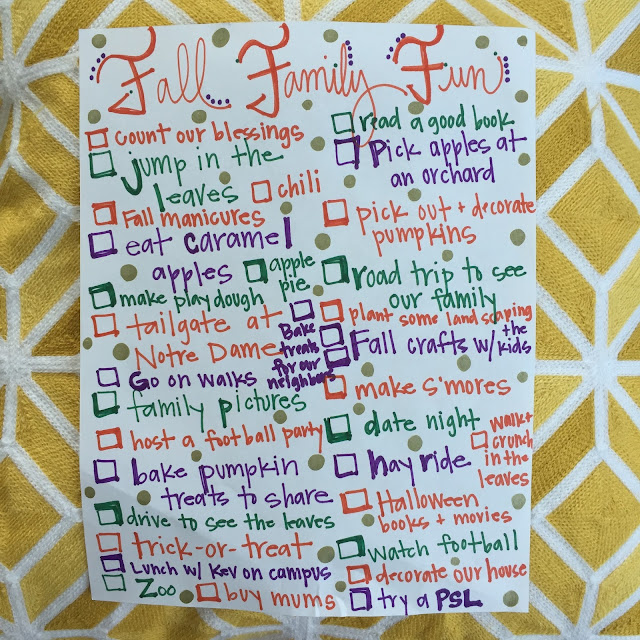 Fall Family Fun
count our blessings
jump in the
leaves
chili
Fall manicures
eat caramel
apples
apple
pie
make play dough
tailgate at
Notre Dame
Bake
treats
for our
neighbors
Go on walks
family pictures
host a football party
bake pumpkin
treats to share
drive to see the leaves
trick-or-treat
Lunch w/ Kev on campus
Zoo
buy mums
read a good book
Pick apples at
an orchard
pick out + decorate
pumpkins
road trip to see
our family
plant some landscaping
Fall crafts w/ the
kids
make s'mores
date night
walk +
crunch
in the
leaves
hay ride
Halloween
books + movies
watch football
decorate our house
try a PSL